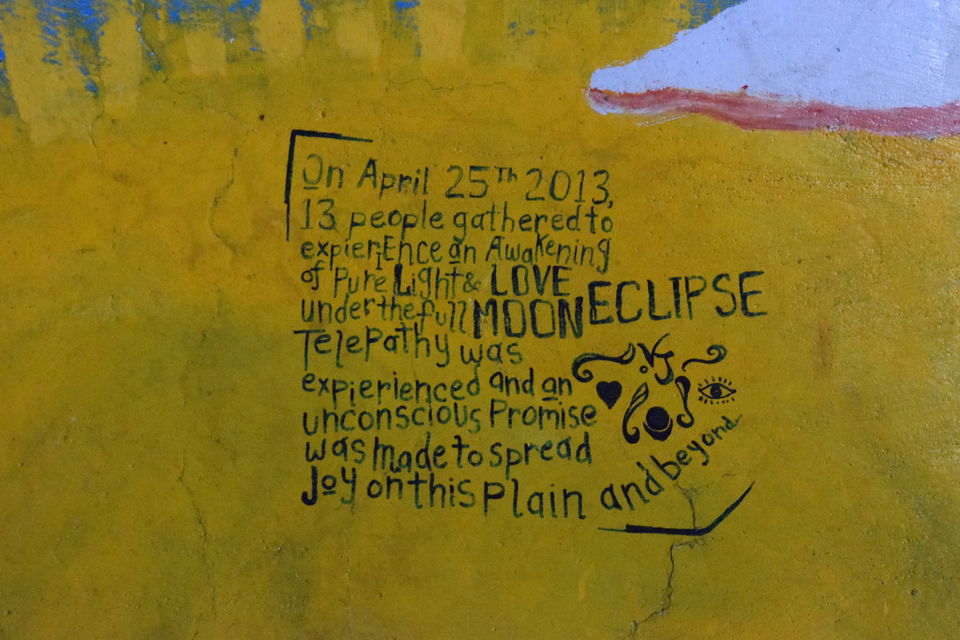 On April 25Th 2013,
13 people gathered to
expieriEnce an Awakening
of Pure Light & LOVE
under the full MOON ECLIPSE
Telepathy was
expierienced and an
unconscious Promise
was made to spread
Joy on this plain and beyond